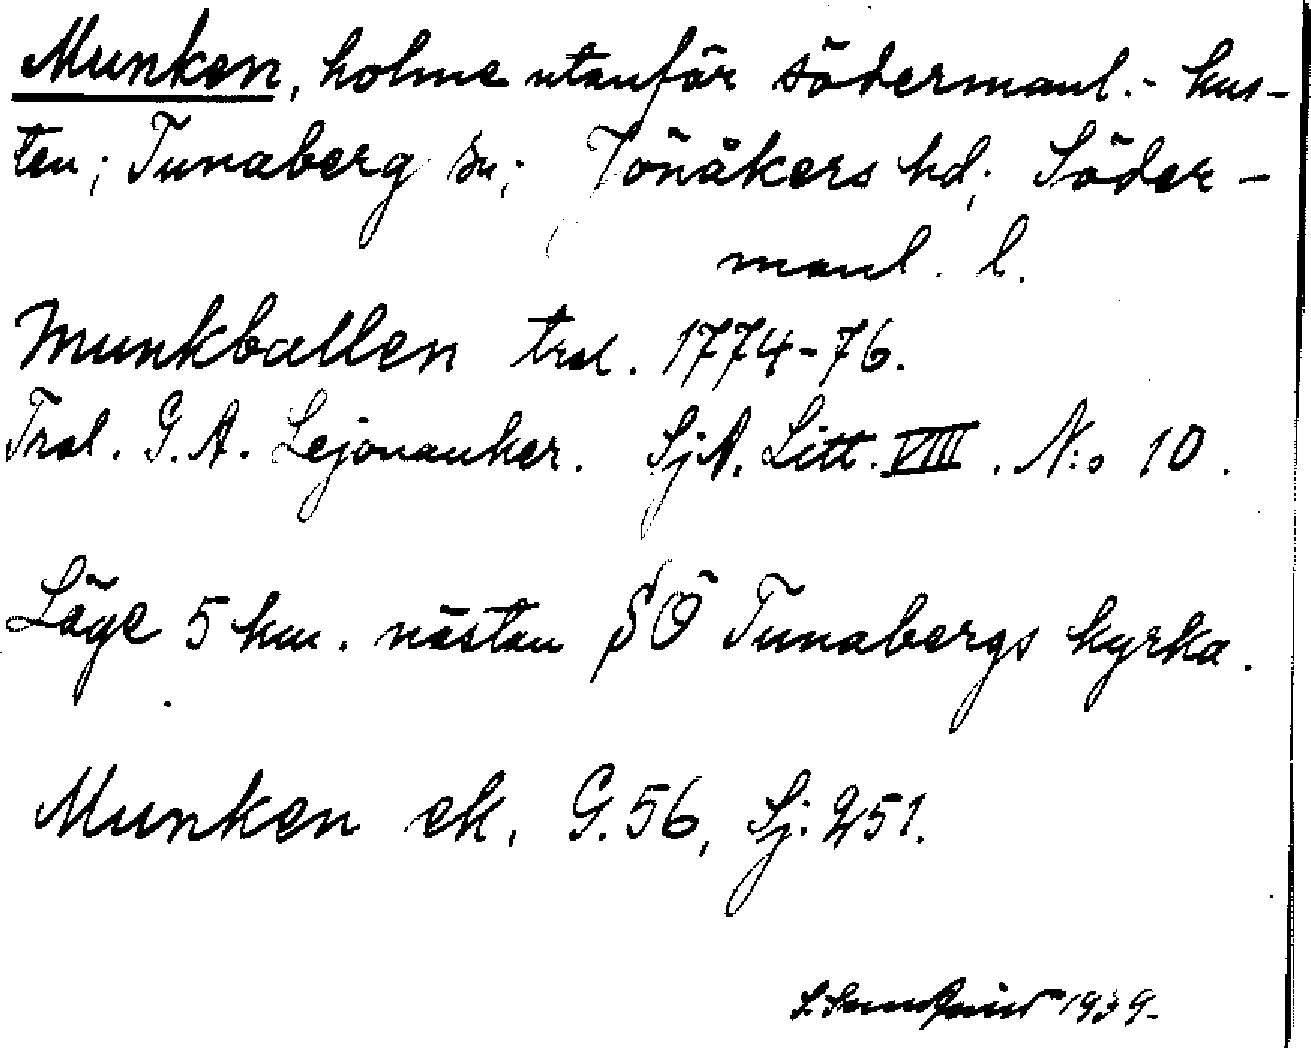 Munken, holme utanför södermanl.- kus-
ten; Tunaberg sn; Jönåkers hd; Söder-
manl. l.
Munkballen trol. 1774-76.
Trol. G. A. Lejonanker. SjA. Litt. VIII. N:o 10.
Läge 5 km. nästan SÖ Tunabergs kyrka.
Munken ek. G. 56, Sj. 251.
1939.